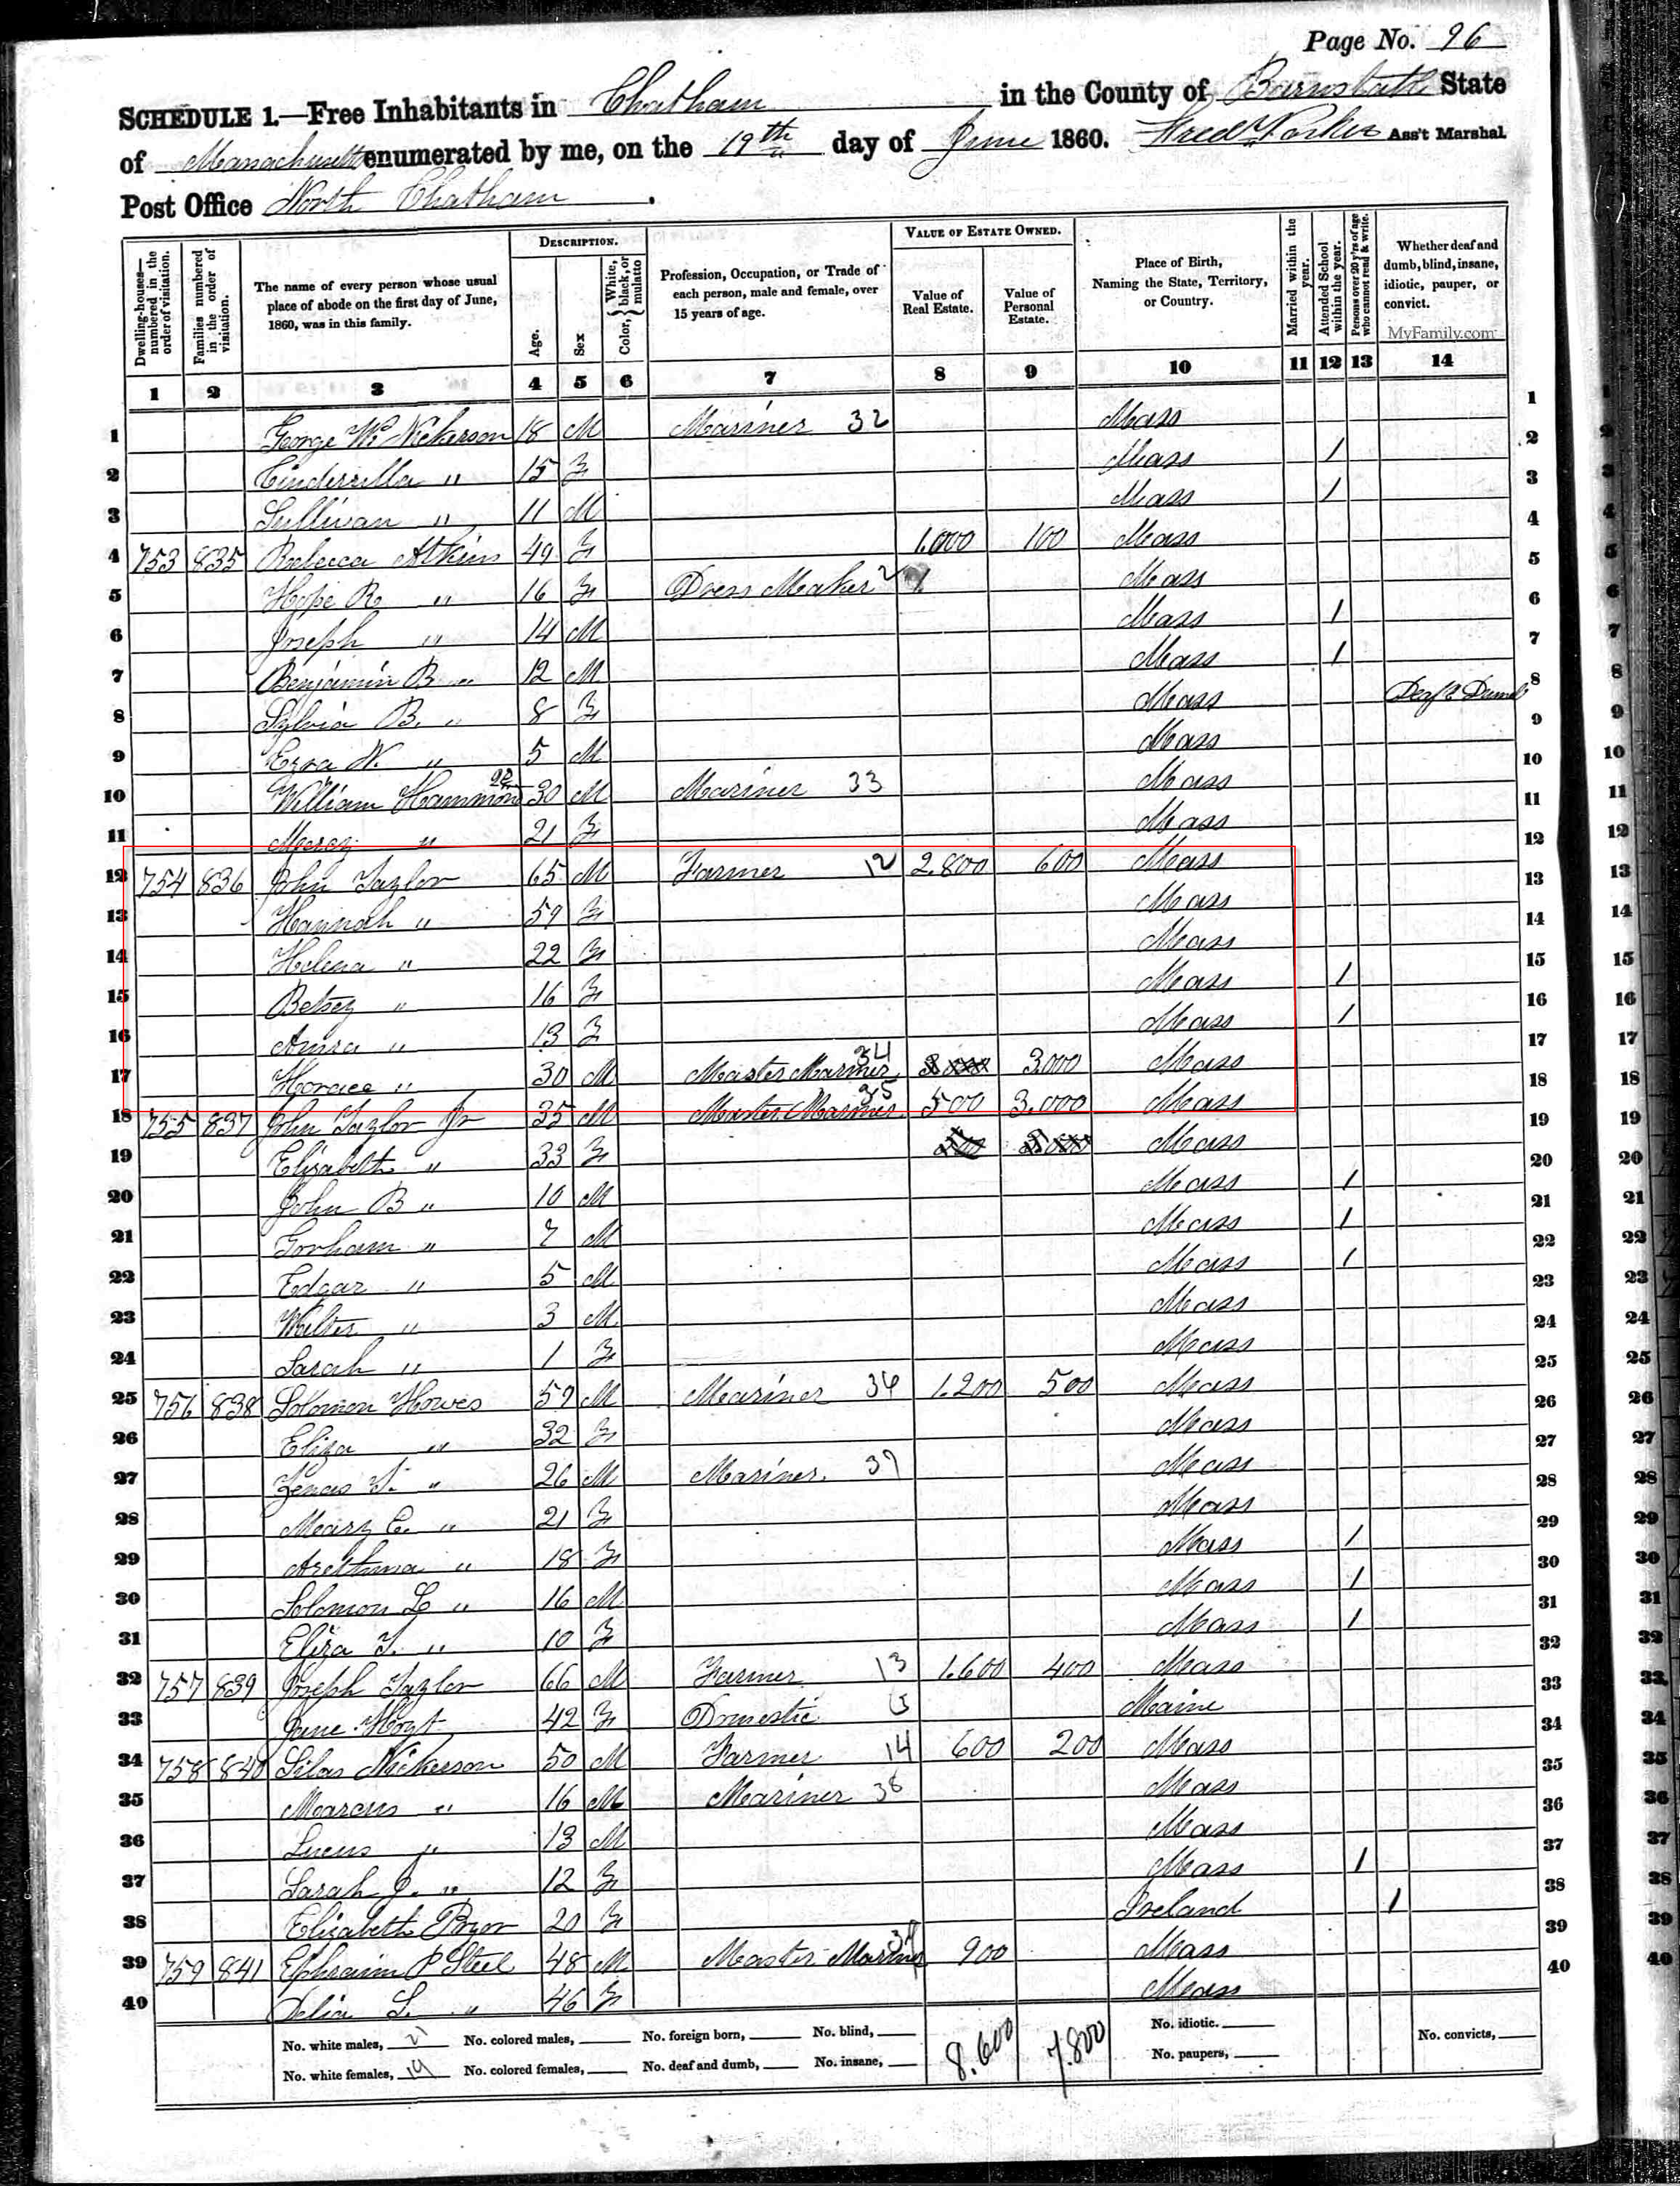 Page No. 96
SCHEDULE 1.—Free Inhabitants in Chatham in the County of Barnstable State
of Massachusetts enumerated by me, on the 19th day of June 1860. Ass't Marshal
Post Office North Chatham.
Dwelling-houses—numbered in the order of visitation.
Families numbered in the order of visitation.
The name of every person whose usual place of abode on the first day of June, 1860, was in this family.
DESCRIPTION.
Age.
Sex
Color, { White, black, or mulatto
Profession, Occupation, or Trade of each person, male and female, over 15 years of age.
VALUE OF ESTATE OWNED.
Value of Real Estate.
Value of Personal Estate.
Place of Birth, Naming the State, Territory, or Country.
Married within the year.
Attended School within the year.
Persons over 20 y'rs of age who cannot read & write.
Whether deaf and dumb, blind, insane, idiotic, pauper, or convict.
MyFamily.com
1 2 3 4 5 6 7 8 9 10 11 12 13 14
1 George W. Nickerson 18 M Mariner 32 Mass 1
2 Cinderella " 15 F Mass 1 2
3 Sullivan " 11 M Mass 1 3
4 753 835 Rebecca Atkins 49 F 1.000 100 Mass 4
5 Hope R. " 16 F Dress Maker 2 Mass 5
6 Joseph " 14 M Mass 1 6
7 Benjamin B. " 12 M Mass 1 7
8 Sylvia B. " 8 F Mass Deaf & Dumb 8
9 Ezra N. " 5 M Mass 9
10 William Hammond 30 M Mariner 33 Mass 10
11 Mercy " 21 F Mass 11
12 754 836 John Taylor 65 M Farmer 12 2.800 600 Mass 12
13 Hannah " 59 F Mass 13
14 Helena " 22 F Mass 14
15 Betsey " 16 F Mass 1 15
16 " 13 F Mass 1 16
17 Horace " 30 M Master Mariner 34 3.000 Mass 17
18 755 837 John Taylor Jr 35 M Master Mariner 35 500 3.000 Mass 18
19 Elizabeth " 33 F Mass 19
20 John B " 10 M Mass 1 20
21 Gorham " 7 M Mass 1 21
22 Edgar " 5 M Mass 1 22
23 Walter " 3 M Mass 23
24 Sarah " 1 F Mass 24
25 756 838 Solomon Howes 59 M Mariner 36 1.200 500 Mass 25
26 Eliza " 32 F Mass 26
27 Zenas T. " 26 M Mariner. 37 Mass 27
28 Mary C. " 21 F Mass 28
29 " 18 F Mass 1 29
30 Solomon L " 16 M Mass 1 30
31 Eliza T. " 10 F Mass 1 31
32 757 839 Joseph Taylor 66 M Farmer 13 1.600 400 Mass 32
33 Jane Hoyt 42 F Domestic Maine 33
34 758 840 Silas Nickerson 50 M Farmer 14 600 200 Mass 34
35 Marcus " 16 M Mariner 38 Mass 35
36 " 13 M Mass 36
37 Sarah J. " 12 F Mass 1 37
38 Elizabeth 20 F Ireland 1 38
39 759 841 Ephraim P Steel 48 M Master Mariner 900 Mass 39
40 Delia L. " 46 F Mass 40
No. white males, 21 No. colored males, No. foreign born, No. blind, 8.600 7.800 No. idiotic. No. convicts,
No. white females, 19 No. colored females, No. deaf and dumb, No. insane, No. paupers,